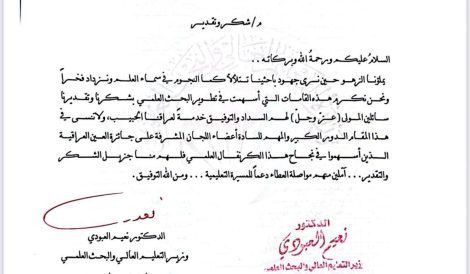 م/ شكر وتقدير
السلام عليكم ورحمة الله وبركاته ..
يملؤنا الزهو حين نرى جهود باحثينا تتلألأ كما النجوم في سماء العلم ونزداد فخراً
ونحن نكرم هذه القامات التي أسهمت في تطوير البحث العلمي بشكرنا وتقديرنا
سائلين المولى (عز وجل) لهم السداد والتوفيق خدمة لعراقنا الحبيب، ولا ننسى في
هذا المقام الدور الكبير والمهم للسادة أعضاء اللجان المشرفة على جائزة العين العراقية
الذين أسهموا في نجاح هذا الكرنفال العلمي فلهم منا جزيل الشكر
والتقدير ... آملين منهم مواصلة العطاء دعماً للمسيرة التعليمية ... ومن الله التوفيق.
الدكتور
نعيم العبودي
وزير التعليم العالي والبحث العلمي
الدكتور نعيم العبودي
وزير التعليم العالي والبحث العلمي